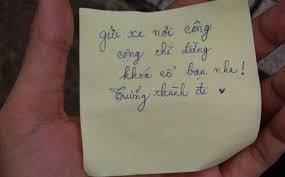 gửi xe nơi công
cộng thì đừng
khoá cổ bạn nha!
Trưởng thành đi ♥